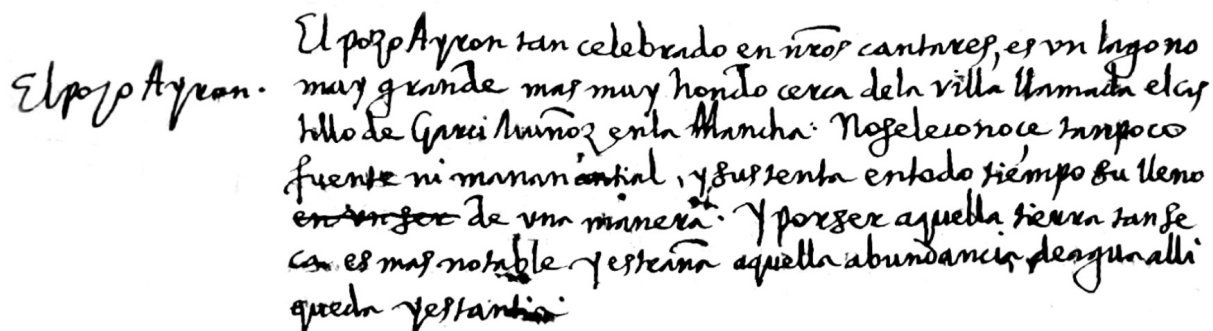 El pozo Ayron.
El pozo Ayron tan celebrado en nr̃os cantares, es vn lago no
muy grande mas muy hondo cerca dela villa llamada el cas
tillo de Garci Muñoz enla Mancha. No se le conoce tampoco
fuente ni manantial, y sustenta entodo tiempo su lleno
en vn ser de vna manera. Y por ser aquella tierra tan se
ca es mas notable y estraña aquella abundancia de agua alli
queda y estantia.